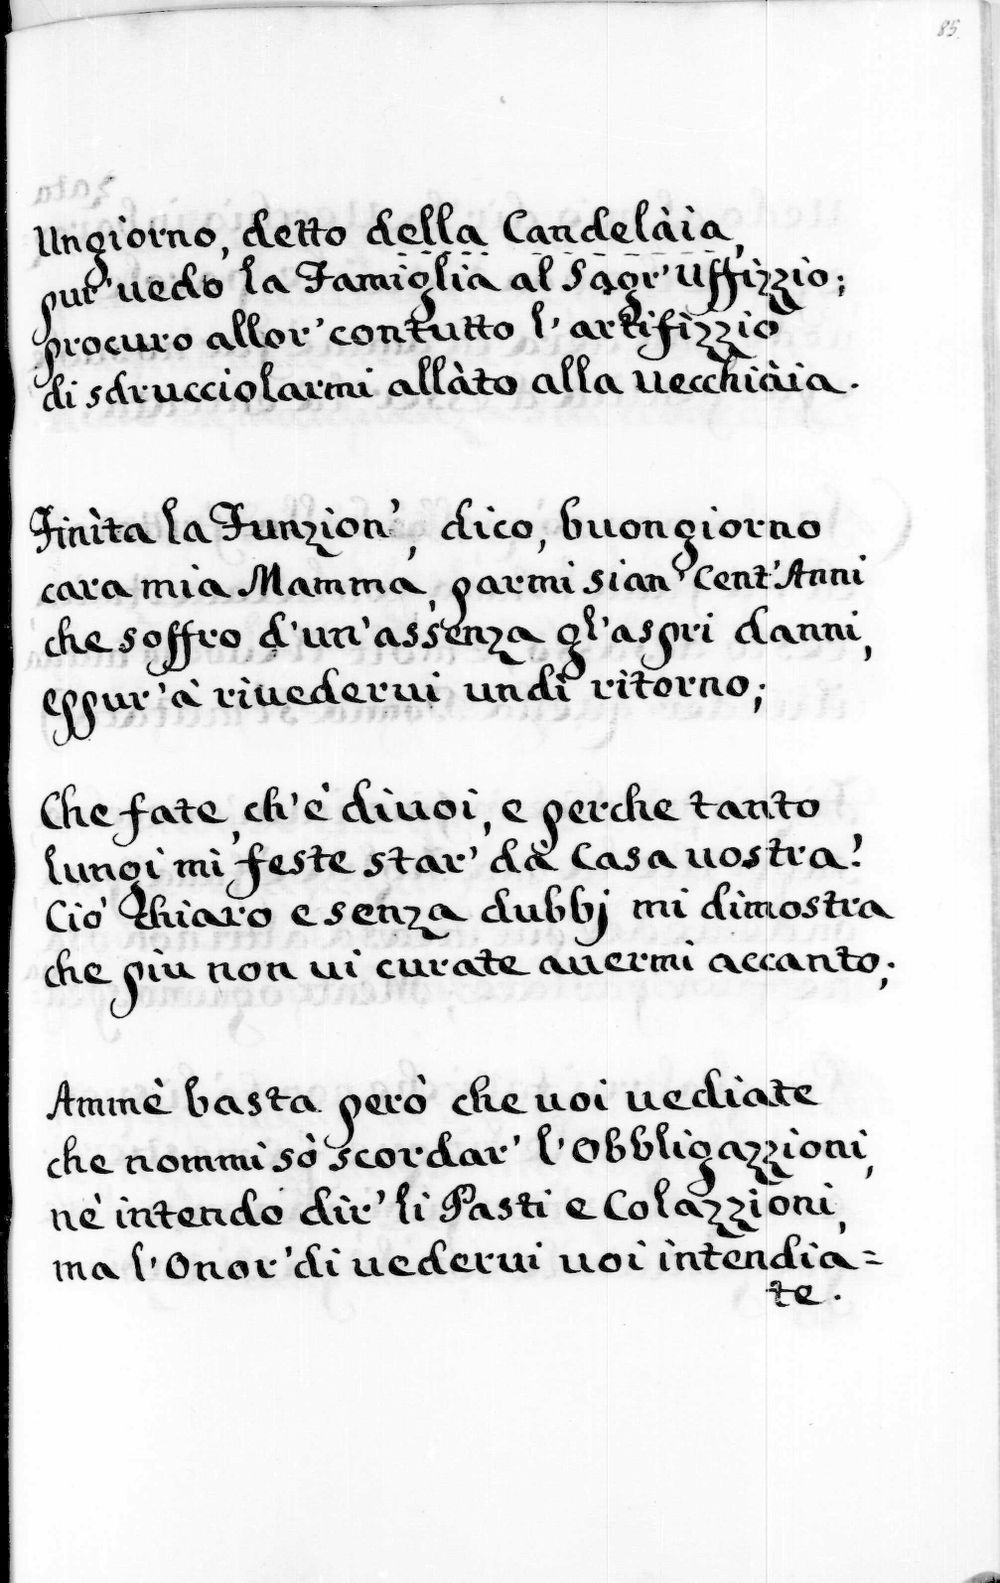 85.
Un giorno, detto della Candelàia,
pur' uedo la Famiglia al Sagr' Uffizzio;
procuro allor' con tutto l' artifizzio
di sdrucciolarmi allàto alla uecchiàia.
Finìta la Funzion', dico, buon giorno
cara mia Mamma, parmi sian' Cent' Anni
che soffro d'un' assenza gl' aspri danni,
eppur' à riuederui un dì ritorno;
Che fate, ch' è di uoi, e perche tanto
lungi mi feste star' dà Casa uostra?
Ciò chiaro e senza dubbj mi dimostra
che piu non ui curate auermi accanto;
Ammè basta però che uoi uediate
che nommi sò scordar' l' Obbligazzioni,
nè intendo dir' li Pasti e Colazzioni,
ma l' Onor' di uederui uoi intendia=
te.